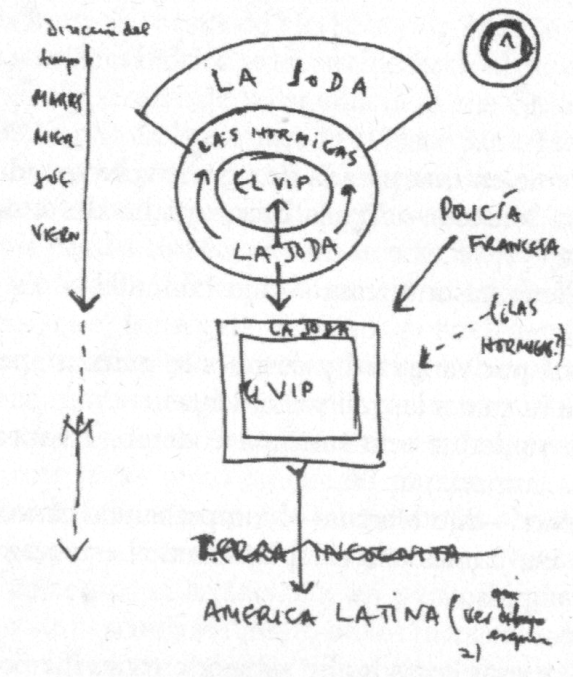 Dirección del
tiempo
MART
MIER
JUE
VIERN
LA JODA
LAS HORMIGAS
EL VIP
LA JODA
POLICÍA
FRANCESA
(¿LAS
HORMIGAS?)
LA JODA
EL VIP
TERRA INCOGNITA
AMERICA LATINA (que
ver dibujo
2)